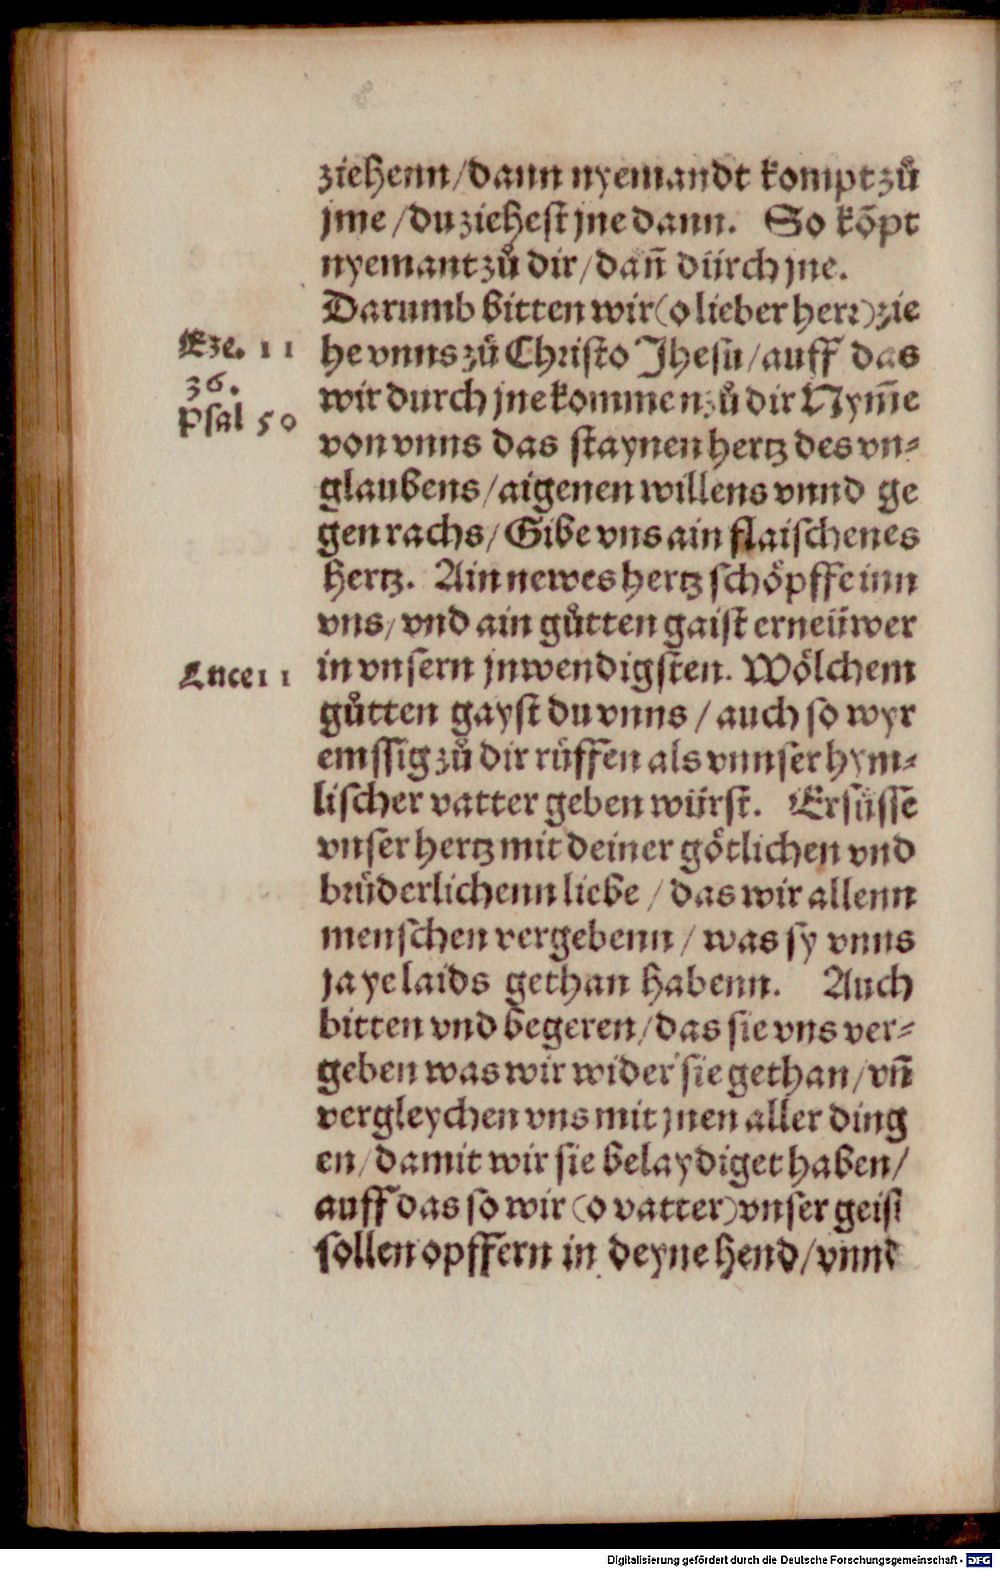 ziehenn/dann nyemandt kompt zů
jme/du ziehest jne dann. So kõpt
nyemant zů dir/dañ dürch jne.
Darumb bitten wir (o lieber herr) zie
Eze. 11
he vnns zů Christo Jhesu/auff das
36.
wir durch jne kommen zů dir Nym̃e
Psal 50
von vnns das staynen hertz des vn-
glaubens/aigenen willens vnnd ge
gen rachs/Gibe vns ain flaischenes
hertz. Ain newes hertz schöpffe inn
vns/vnd ain gůtten gaist erneüwer
Luce 11
in vnsern jnwendigsten. Wölchem
gůtten gayst du vnns/auch so wyr
emssig zů dir rüffen als vnnser hym-
lischer vatter geben würst. Ersüsse
vnser hertz mit deiner götlichen vnd
brüderlichenn liebe/das wir allenn
menschen vergebenn/was sy vnns
ja ye laids gethan habenn. Auch
bitten vnd begeren/das sie vns ver-
geben was wir wider sie gethan/vñ
vergleychen vns mit jnen aller ding
en/damit wir sie belaydiget haben/
auff das so wir (o vatter) vnser geist
sollen opffern in deyne hend/vnnd
Digitalisierung gefördert durch die Deutsche Forschungsgemeinschaft - DFG